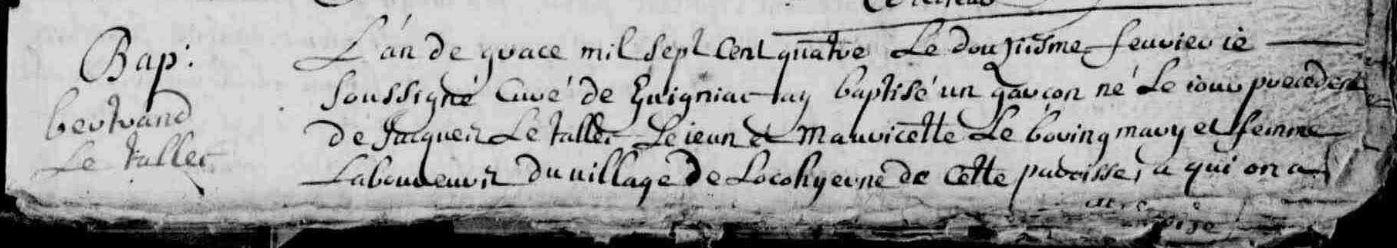 Bap:
bertrand
Le tallec
L'an de grace mil sept cent quatre Le douziesme feuvier ie
soussigné Curé de Guigniac ay baptisé un garçon né Le iour precedent
de Jacques Le tallec Le ieun et Mauricette Le boving mary et femme
Laboureurs du village de Locohyerne de Cette paroisse, a qui on a